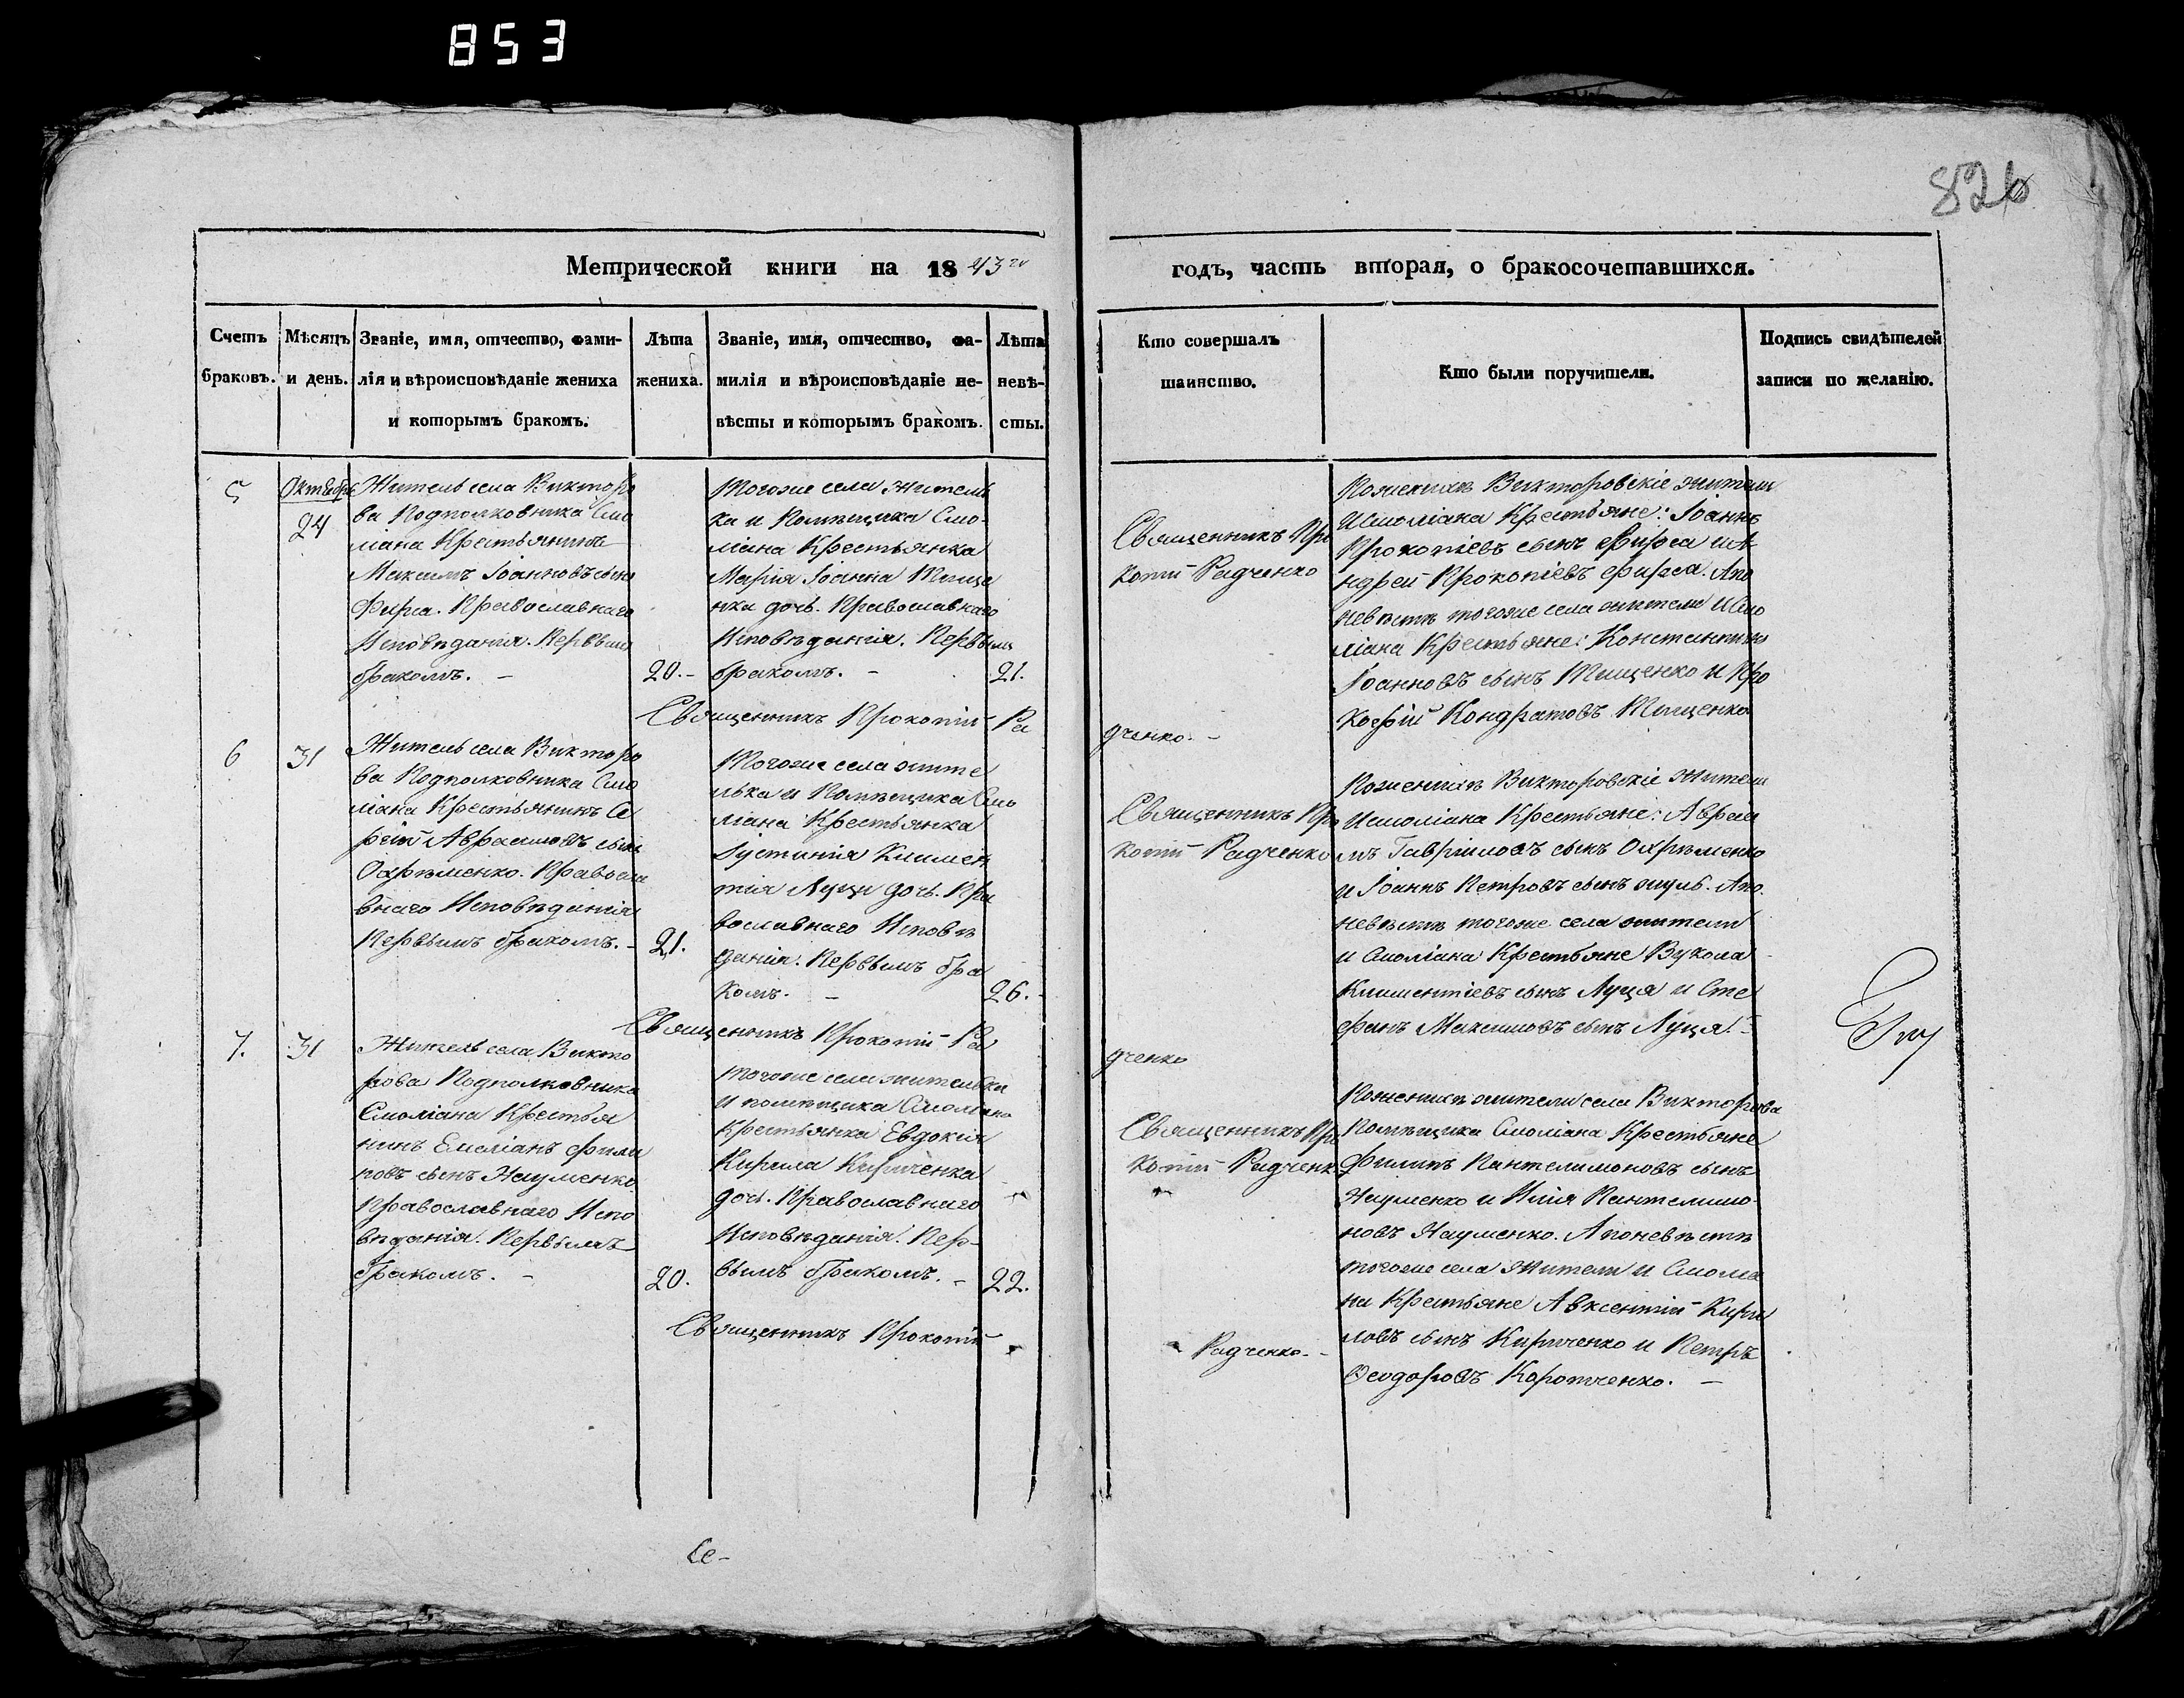 853
826
Метрической книги на 1843го
годъ, часть вторая, о бракосочетавшихся.
Счетъ браковъ.
Мѣсяцъ и день.
Званіе, имя, отчество, фами-
лія и вѣроисповѣданіе жениха
и которымъ бракомъ.
Лѣта
жениха.
Званіе, имя, отчество, фа-
милія и вѣроисповѣданіе не-
вѣсты и которымъ бракомъ.
Лѣта
невѣ-
сты.
Кто совершалъ
таинство.
Кто были поручители.
Подпись свидѣтелей
записи по желанію.
5
Октября
24
Житель села Викторо
ва Подполковника Смо
ліана Крестьянинъ
Максимъ Іоанновъ сынъ
Фирса. Православнаго
Исповѣданія. Первымъ
бракомъ. –
20. –
Тогоже села житель
ка и Помѣщика Смо-
ліана Крестьянка
Марія Іоанна Тище
нка дочь. Православнаго
Исповѣданія. Первымъ
бракомъ. –
21.
Священникъ Про
копій Радченко
Поженихѣ Викторовскіе жители
Исмоліана Крестьяне: Іоаннъ
Прокопіевъ сынъ Фирса и А
ндрей Прокопіевъ Фирса. Апо
невѣстѣ тогоже села жители и Смо
ліана Крестьяне: Константинъ
Іоанновъ сынъ Тищенко и Про
кофій Кондратовъ Тищенко
Священникъ Прокопій Ра
дченко. –
6
31
Житель села Викторо
ва Подполковника Смо
ліана Крестьянинъ Се
ргій Авраамовъ сынъ
Охрѣменко. Правосла
внаго Исповѣданія
Первымъ бракомъ. –
21.
Тогоже села жите
лька и Помѣщика Смо
ліана Крестьянка
Іустинія Климен
тія Луци дочь. Пра
вославнаго Исповѣ
данія. Первымъ бра
комъ. –
26. –
Священникъ Про
копій Радченко
Поженихѣ Викторовскіе жители
Исмоліана Крестьяне: Авраа
мъ Гавріиловъ сынъ Охрѣменко
и Іоаннъ Петровъ сынъ Апо
невѣстѣ тогоже села жители
и Смоліана Крестьяне Вукола
Климентіевъ сынъ Луця и Сте
фанъ Максимовъ сынъ Луця. –
Священникъ Прокопій Ра
дченко
7.
31
Житель села Викто
рова Подполковника
Смоліана Крестья
нинъ Емеліанъ Фили
повъ сынъ Науменко
Православнаго Испо
вѣданія. Первымъ
бракомъ. –
20.
Тогоже села жителька
и помѣщика Смоліана
Крестьянка Евдокія
Кирила Кириченка
дочь. Православнаго
Исповѣданія. Пер-
вымъ бракомъ. –
22.
Священникъ Про
копій Радченк
Поженихѣ жители села Викторова
Помѣщика Смоліана Крестьяне
Филипъ Пантелимоновъ сынъ
Науменко и Илія Пантелимо-
новъ Науменко. Апоневѣстѣ
тогоже села жители и Смоліа
на Крестьяне Авксентій Кири
ловъ сынъ Кириченко и Петръ
Ѳеодоровъ Коротченко. –
Священникъ Прокопій
Радченко. –
Се-